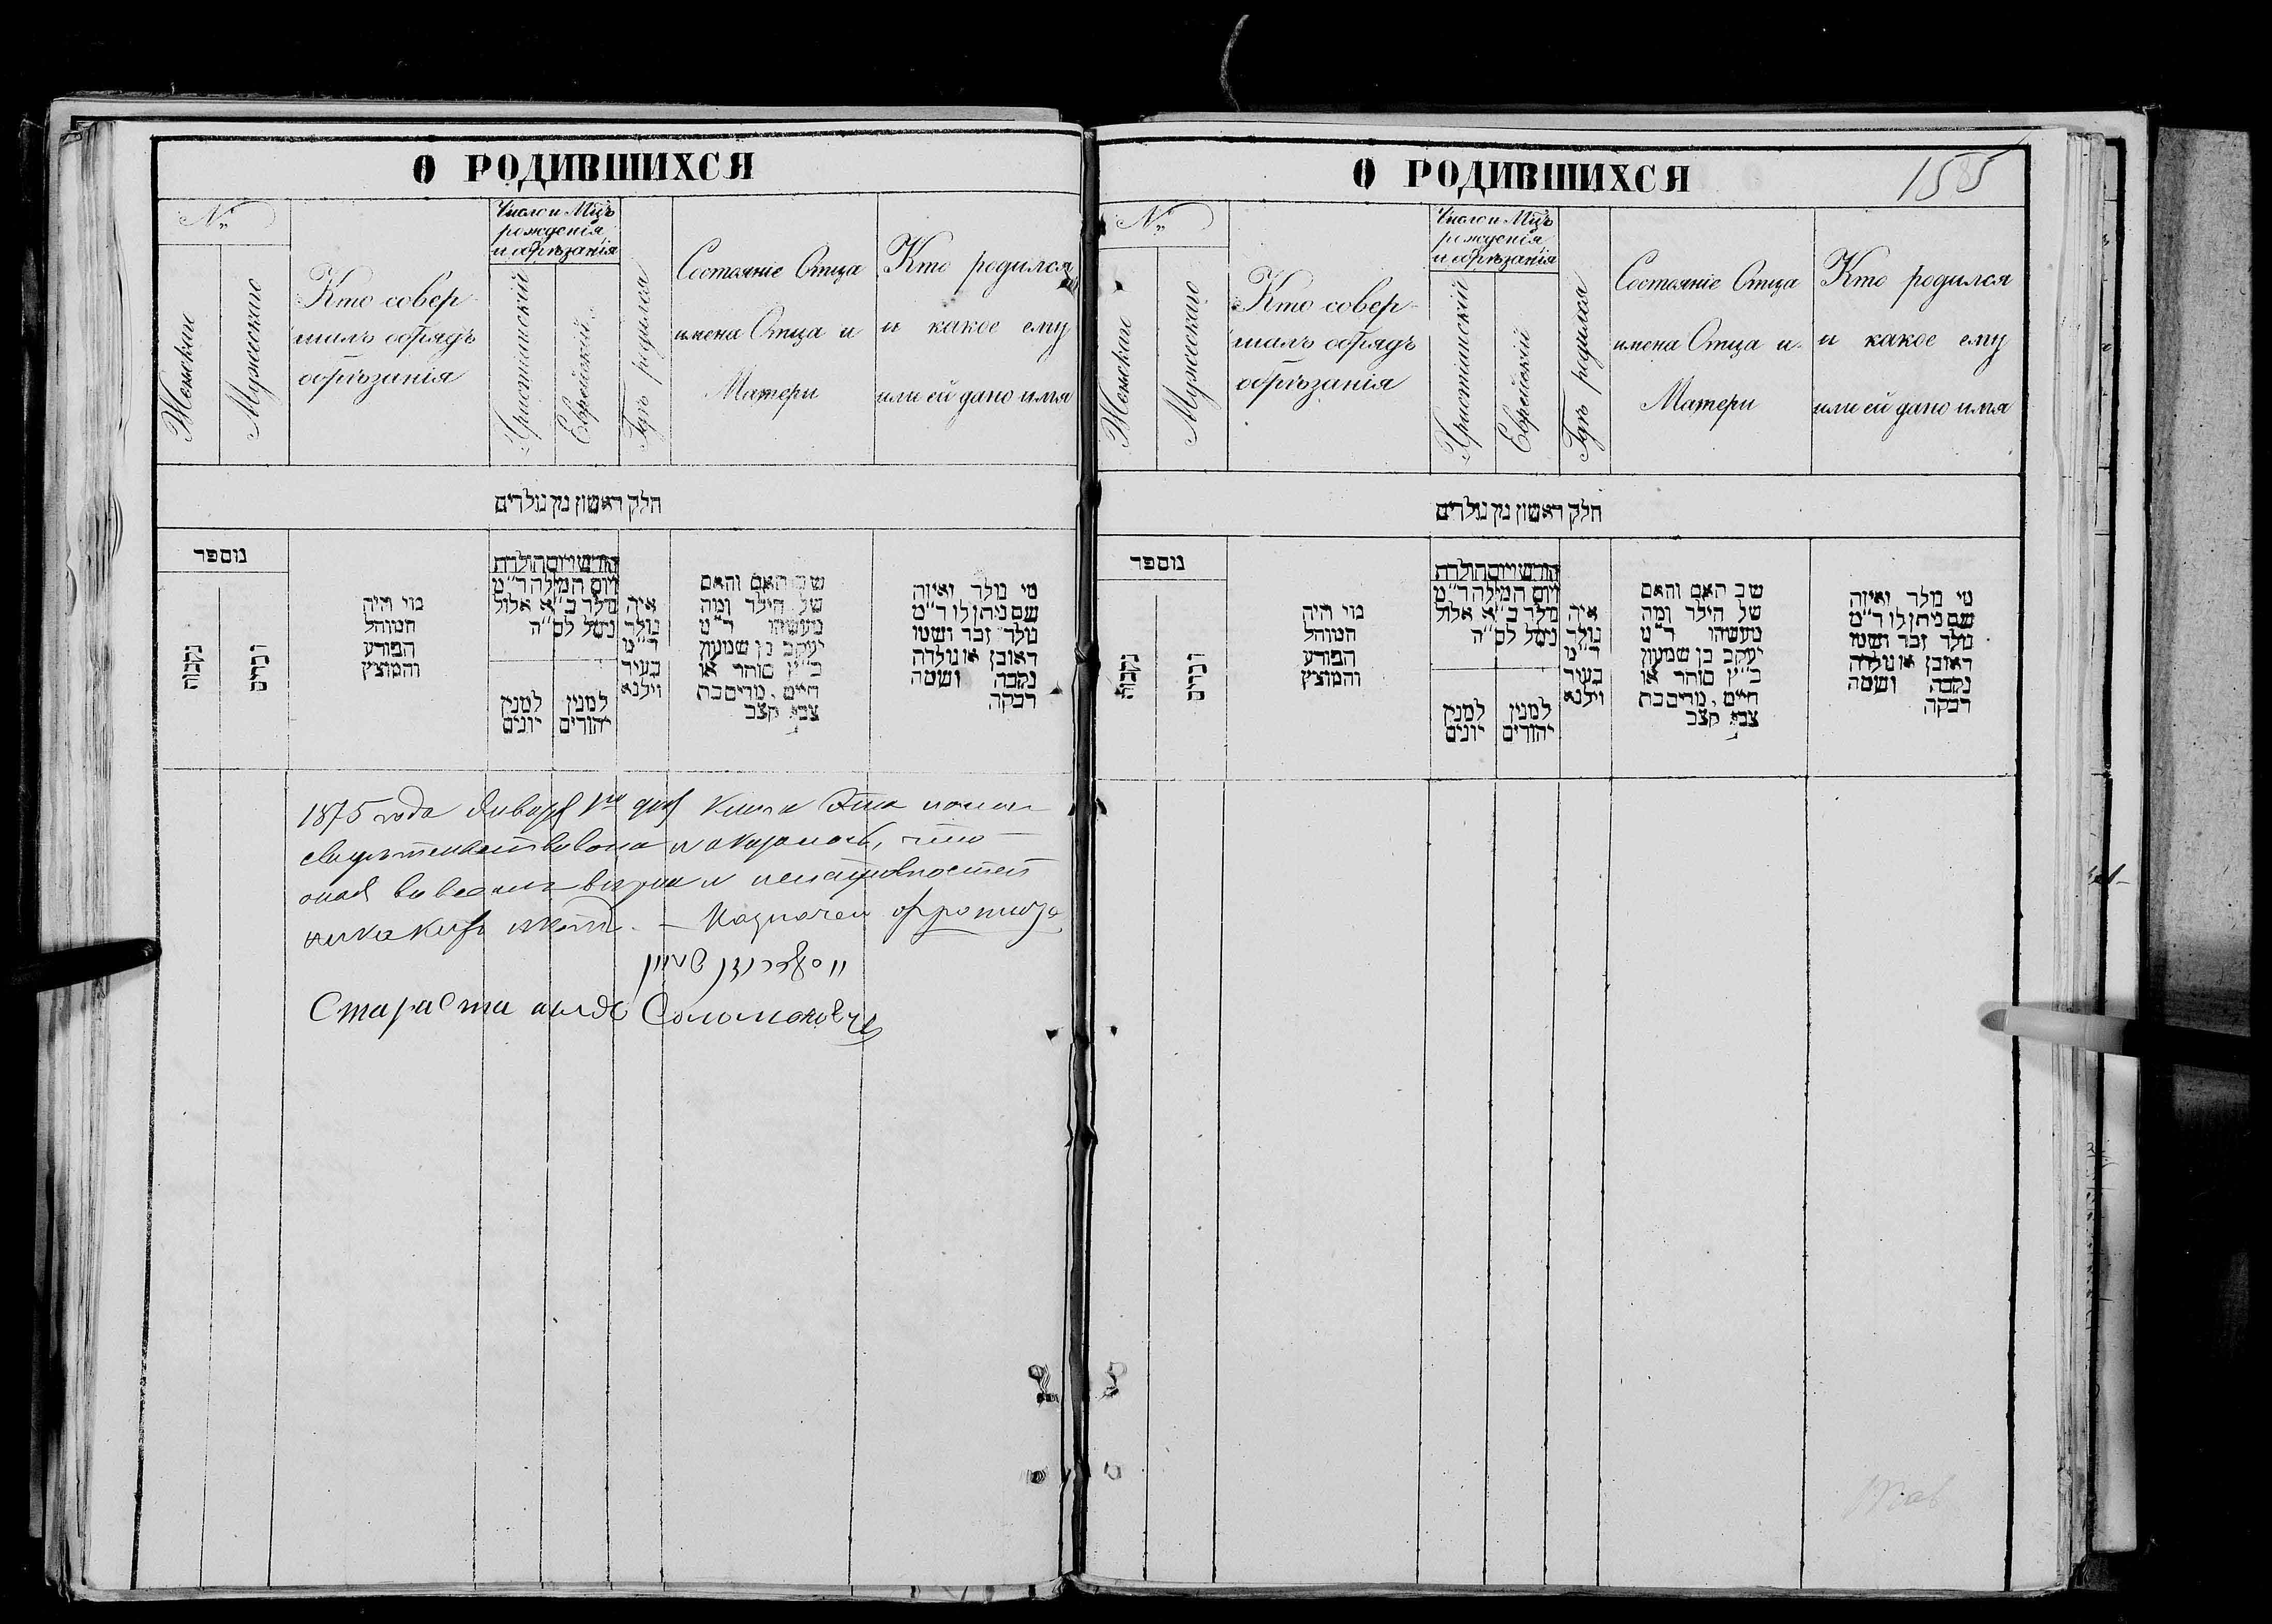 О РОДИВШИХСЯ
№
Женскаго
Мужескаго
Кто совер-
шилъ обрядъ
обрѣзанія
Число и Мцъ
рожденія
и обрѣзанія
Христіанскій
Еврейскій
Гдѣ родился
Состояніе Отца
имена Отца и
Матери
Кто родился
и какое ему
или ей дано имя
חלק ראשון מן נולדים
מוספר
נקבות
זכרים
מי היה
המוהל
הפורע
והמוצץ
חודש ויום הולדת
ויום המילה ד״מ
נולד כ״א אלול
נימל לס״ה
למנין
יונים
למנין
יהודים
איה
נולד
ד״מ
בעיר
ווילנא
שם האב והאם
של הילד ומה
מעשיהו ד״מ
יעקב בן שמעון
כ״ץ סוחר או
חייט, מרים בת
צבי קצב
מי נולד ואיזה
שם ניתן לו ד״מ
נולד זכר ושמו
ראובן או נולדה
נקבה ושמה
רבקה
1875 года Января 1го дня Книга эта
свидѣтельствована и оказалось, что
оная
никакихъ нѣтъ. — Казначей
Стараста Соломоновичъ
О РОДИВШИХСЯ
155
№
Женскаго
Мужескаго
Кто совер-
шилъ обрядъ
обрѣзанія
Число и Мцъ
рожденія
и обрѣзанія
Христіанскій
Еврейскій
Гдѣ родился
Состояніе Отца
имена Отца и
Матери
Кто родился
и какое ему
или ей дано имя
חלק ראשון מן נולדים
מוספר
נקבות
זכרים
מי היה
המוהל
הפורע
והמוצץ
חודש ויום הולדת
ויום המילה ד״מ
נולד כ״א אלול
נימל לס״ה
למנין
יונים
למנין
יהודים
איה
נולד
ד״מ
בעיר
ווילנא
שם האב והאם
של הילד ומה
מעשיהו ד״מ
יעקב בן שמעון
כ״ץ סוחר או
חייט, מרים בת
צבי קצב
מי נולד ואיזה
שם ניתן לו ד״מ
נולד זכר ושמו
ראובן או נולדה
נקבה ושמה
רבקה